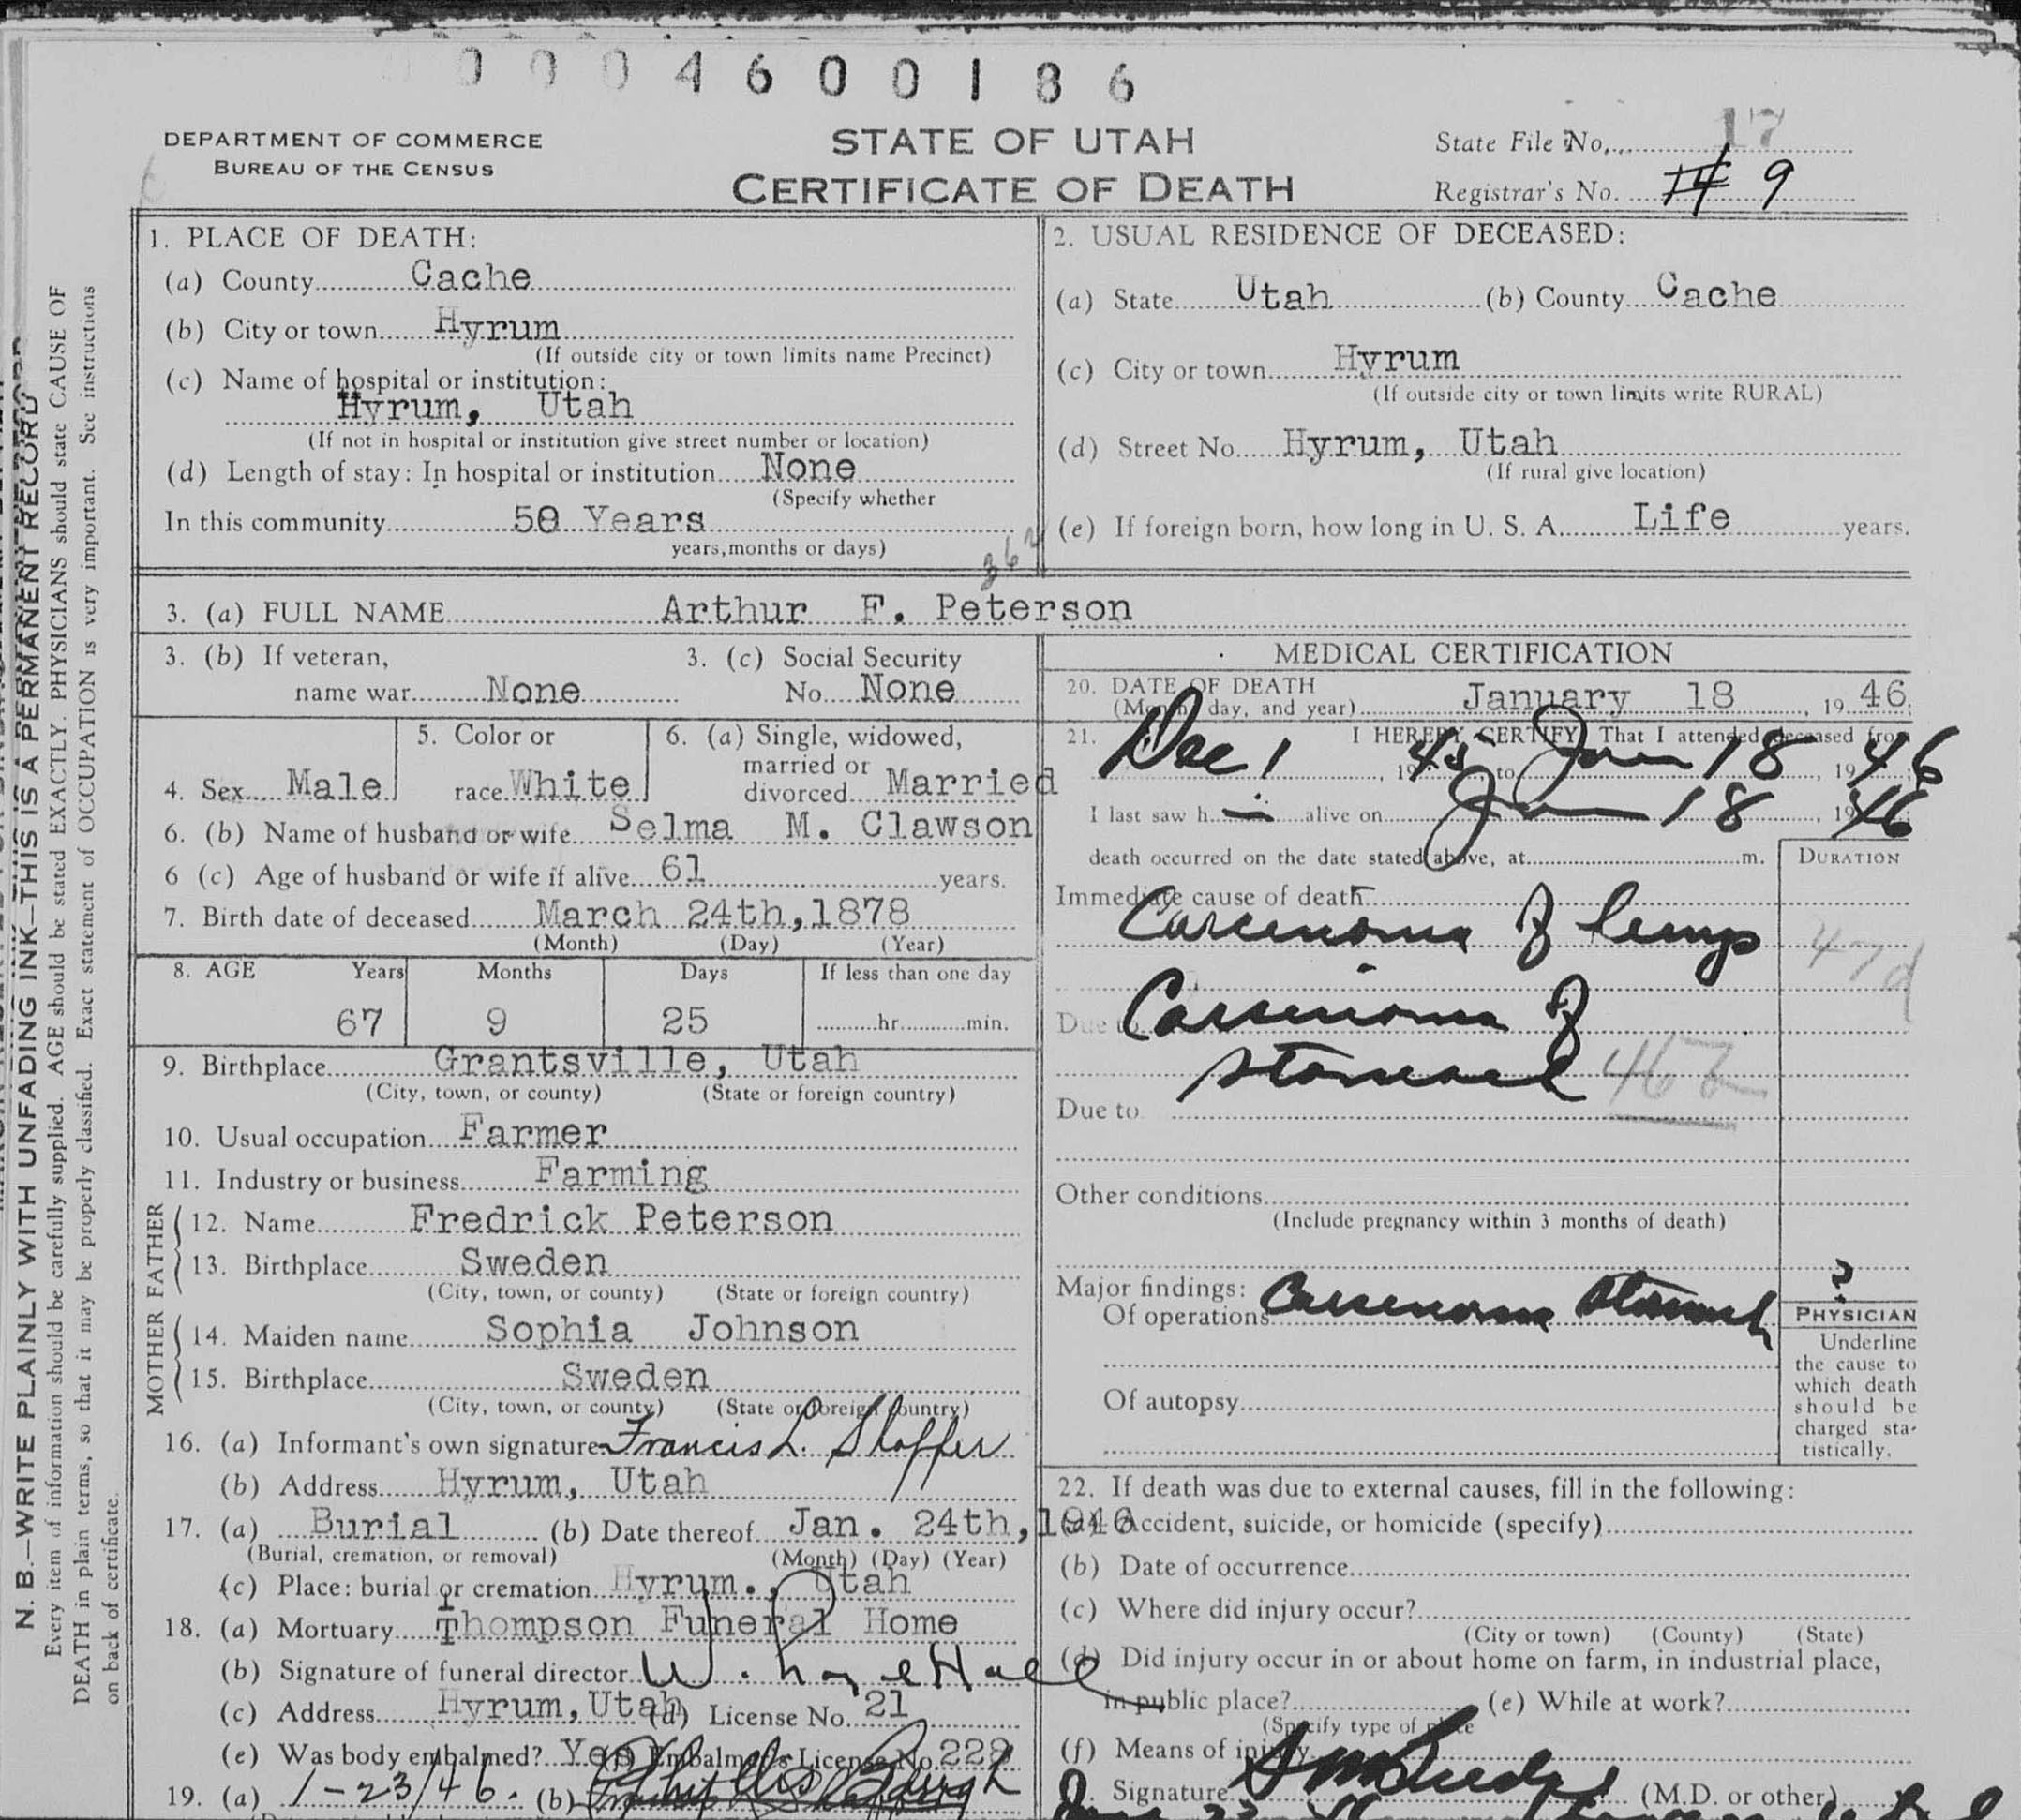 0 0 0 4 6 0 0 1 8 6
DEPARTMENT OF COMMERCE
BUREAU OF THE CENSUS
STATE OF UTAH
CERTIFICATE OF DEATH
State File No. 17
Registrar's No. 14 9
N. B.—WRITE PLAINLY WITH UNFADING INK—THIS IS A PERMANENT RECORD
Every item of information should be carefully supplied. AGE should be stated EXACTLY. PHYSICIANS should state CAUSE OF
DEATH in plain terms, so that it may be properly classified. Exact statement of OCCUPATION is very important. See instructions
on back of certificate.
1. PLACE OF DEATH:
(a) County Cache
(b) City or town Hyrum
(If outside city or town limits name Precinct)
(c) Name of hospital or institution:
Hyrum, Utah
(If not in hospital or institution give street number or location)
(d) Length of stay: In hospital or institution None
(Specify whether
In this community 50 Years
years, months or days)
362
2. USUAL RESIDENCE OF DECEASED:
(a) State Utah (b) County Cache
(c) City or town Hyrum
(If outside city or town limits write RURAL)
(d) Street No. Hyrum, Utah
(If rural give location)
(e) If foreign born, how long in U. S. A. Life years.
3. (a) FULL NAME Arthur F. Peterson
3. (b) If veteran,
name war None
3. (c) Social Security
No. None
4. Sex Male
5. Color or
race White
6. (a) Single, widowed,
married or
divorced Married
6. (b) Name of husband or wife Selma M. Clawson
6 (c) Age of husband or wife if alive 61 years.
7. Birth date of deceased March 24th, 1878
(Month) (Day) (Year)
8. AGE Years Months Days If less than one day
67 9 25 hr. min.
9. Birthplace Grantsville, Utah
(City, town, or county) (State or foreign country)
10. Usual occupation Farmer
11. Industry or business Farming
FATHER
12. Name Fredrick Peterson
13. Birthplace Sweden
(City, town, or county) (State or foreign country)
MOTHER
14. Maiden name Sophia Johnson
15. Birthplace Sweden
(City, town, or county) (State or foreign country)
16. (a) Informant's own signature Francis L. Shaffer
(b) Address Hyrum, Utah
17. (a) Burial (b) Date thereof Jan. 24th, 1946
(Burial, cremation, or removal) (Month) (Day) (Year)
(c) Place: burial or cremation Hyrum., Utah
18. (a) Mortuary Thompson Funeral Home
(b) Signature of funeral director W. Hall
(c) Address Hyrum, Utah (d) License No. 21
(e) Was body embalmed? Yes (f) Embalmer's License No. 228
19. (a) 1-23/46. (b)
MEDICAL CERTIFICATION
20. DATE OF DEATH
(Month, day, and year) January 18, 1946
21. I HEREBY CERTIFY, That I attended deceased from
Dec 1, 1945 to Jan 18, 1946
I last saw h im alive on Jan 18, 1946
death occurred on the date stated above, at m.
DURATION
Immediate cause of death
Carcinoma of lungs
47d
Due to Carcinoma of
stomach 46b
Due to
Other conditions
(Include pregnancy within 3 months of death)
Major findings:
Of operations Carcinoma Stomach
?
Of autopsy
PHYSICIAN
Underline
the cause to
which death
should be
charged sta-
tistically.
22. If death was due to external causes, fill in the following:
(a) Accident, suicide, or homicide (specify)
(b) Date of occurrence
(c) Where did injury occur?
(City or town) (County) (State)
(d) Did injury occur in or about home on farm, in industrial place,
in public place? (e) While at work?
(Specify type of place
(f) Means of injury
Signature (M.D. or other)